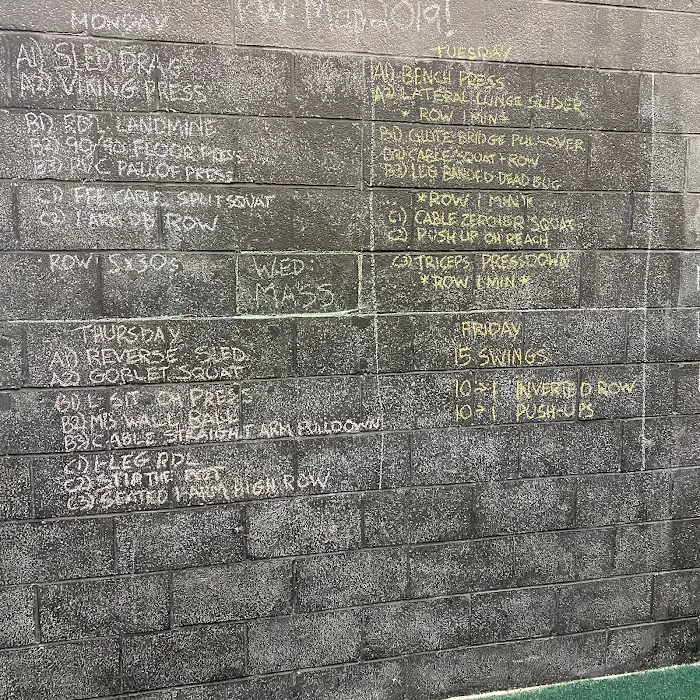 PW: Mandola!
MONDAY
A1) SLED DRAG
A2) VIKING PRESS
B1) RDL LANDMINE
B2) 90/90 FLOOR PRESS
B3) PVC PALLOF PRESS
C1) FFE CABLE SPLIT SQUAT
C2) 1 ARM DB ROW
ROW 15x30s
TUESDAY
A1) BENCH PRESS
A2) LATERAL LUNGE SLIDER
* ROW 1 MIN *
B1) GLUTE BRIDGE PULL-OVER
B2) CABLE SQUAT + ROW
B3) LEG BANDED DEAD BUG
*ROW 1 MIN*
C1) CABLE ZERCHER SQUAT
C2) PUSH UP OH REACH
C3) TRICEPS PRESSDOWN
*ROW 1 MIN*
WED:
MASS
THURSDAY
A1) REVERSE SLED
A2) GOBLET SQUAT
B1) L-SIT OH PRESS
B2) MB WALL BALL
B3) CABLE STRAIGHT ARM PULLDOWN
C1) 1-LEG RDL
C2) STIR THE POT
C3) SEATED 1-ARM HIGH ROW
FRIDAY
15 SWINGS
10>1 INVERTED ROW
10>1 PUSH-UPS